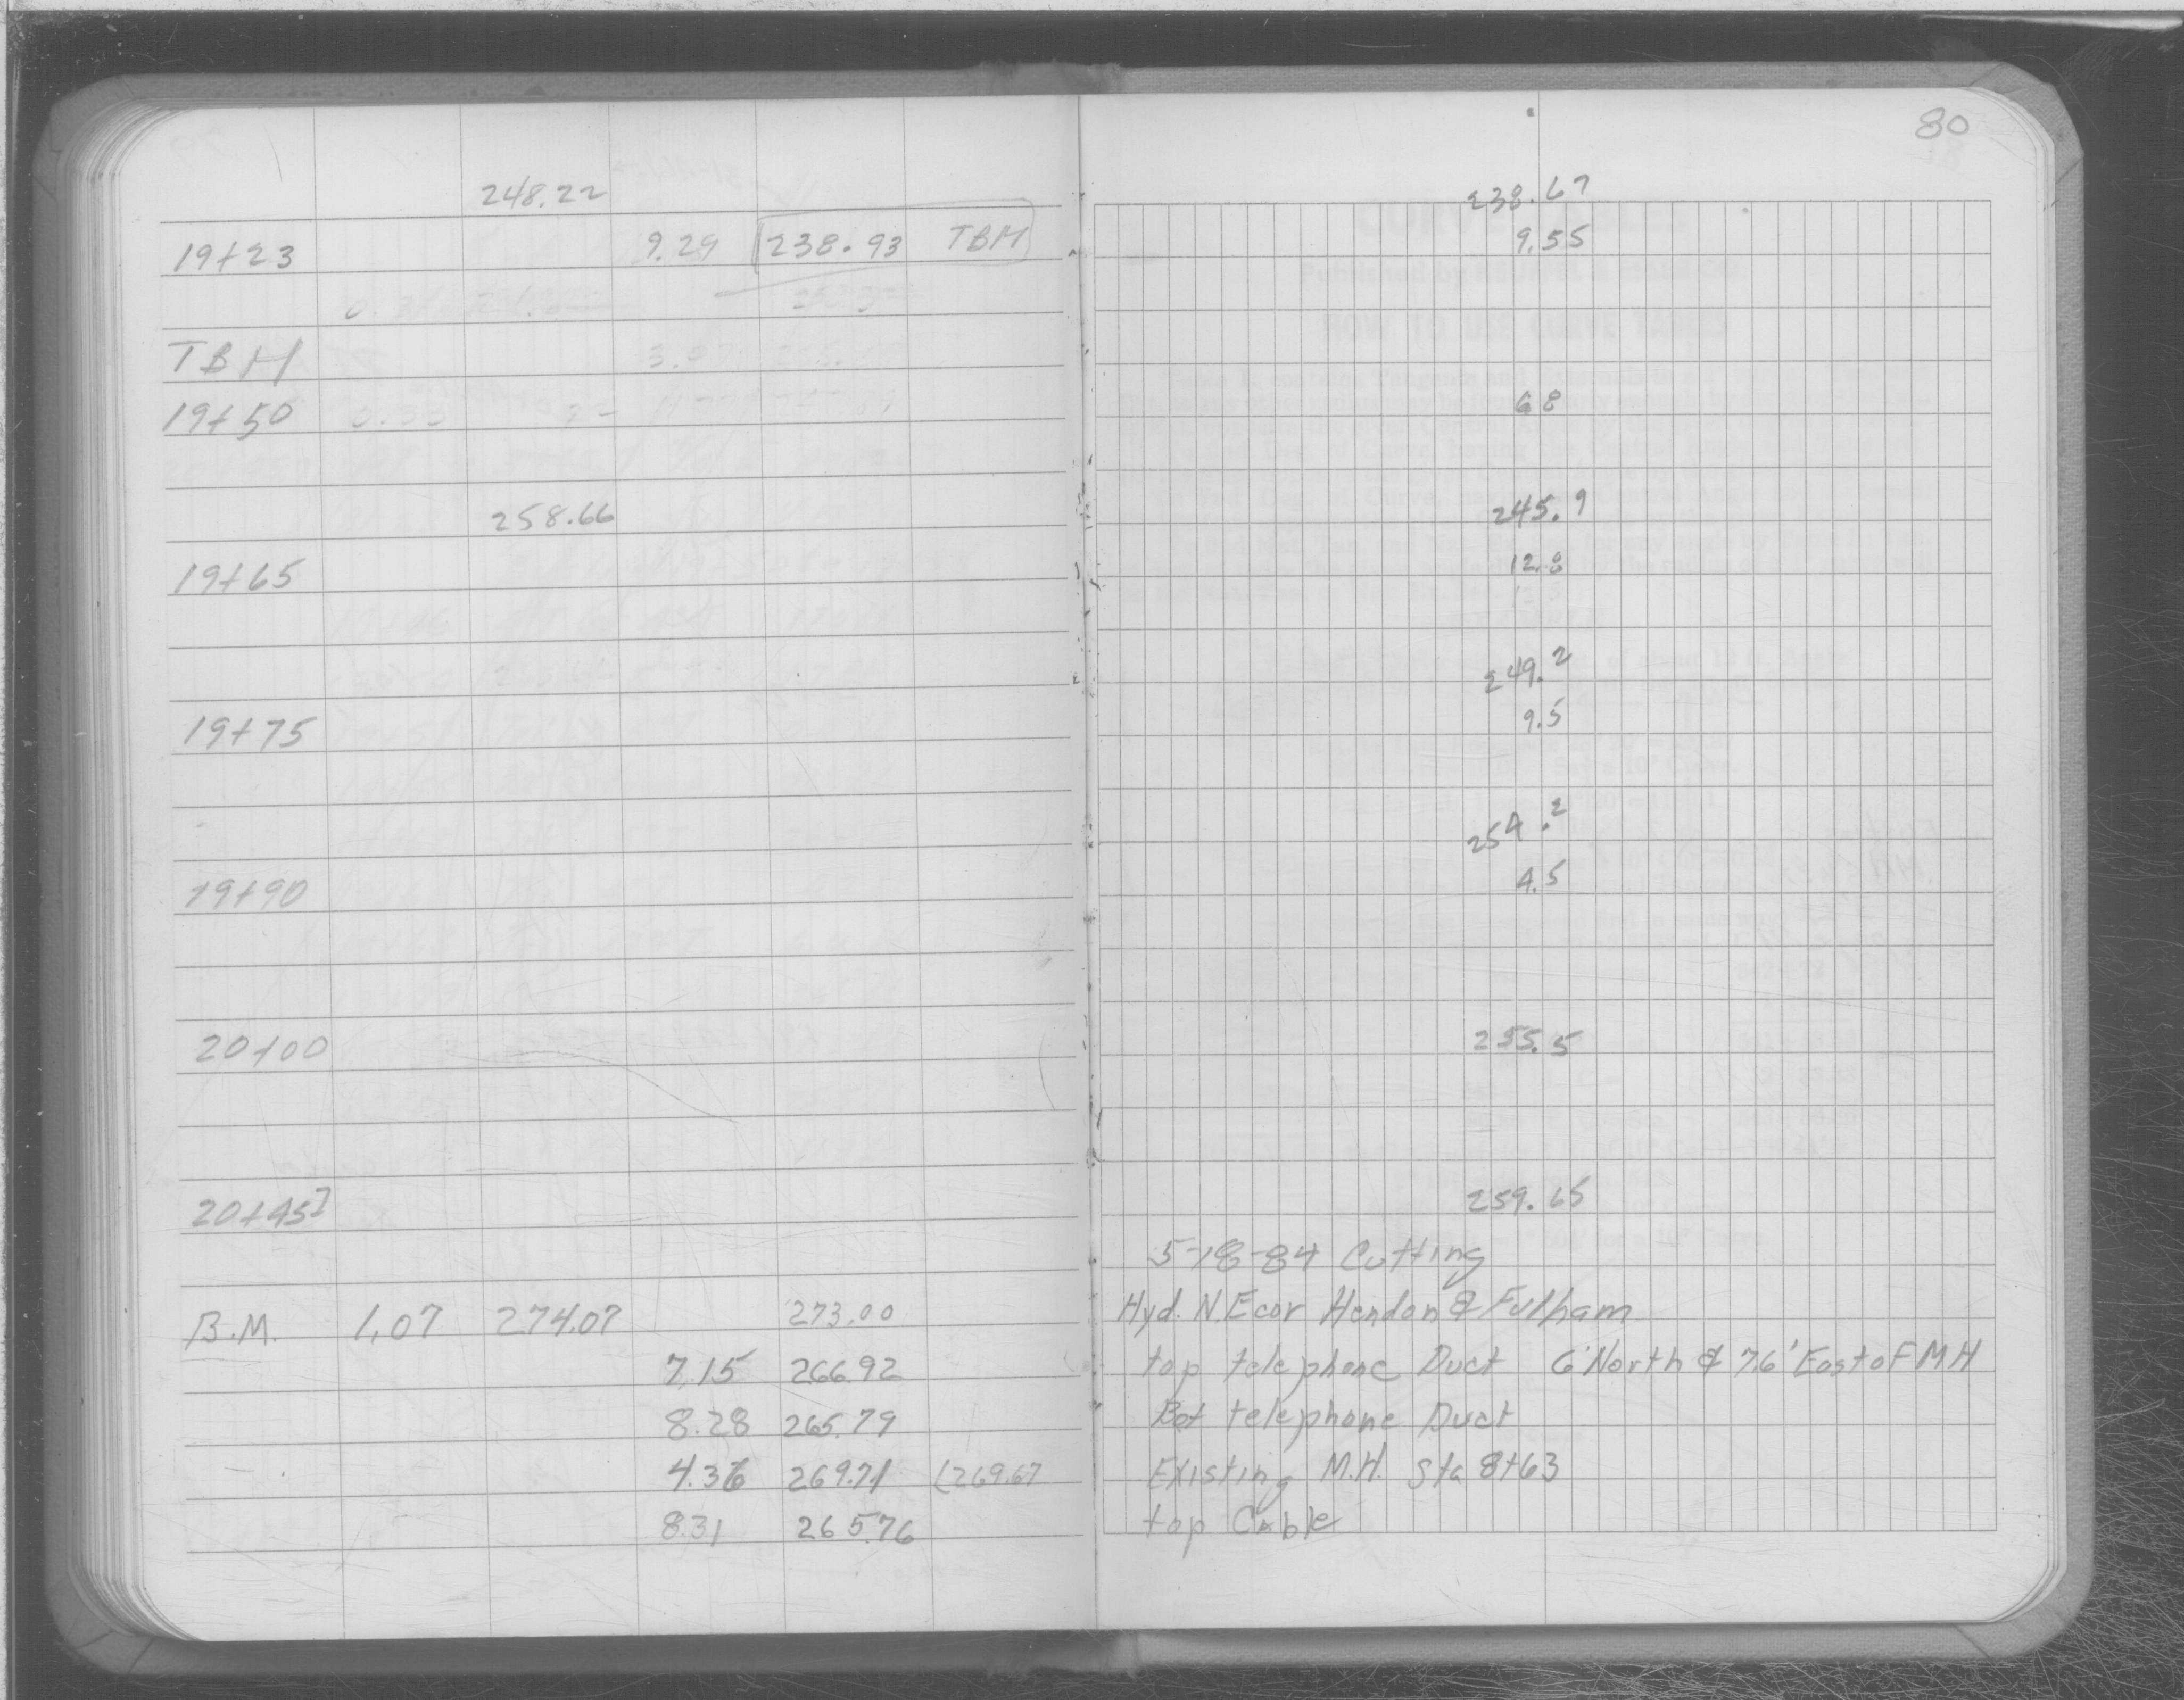 80
248.22 238.67
19+23 9.29 238.93 TBM 9.55
TBM
19+50 6.8
258.66 245.9
19+65 12.8
249.2
19+75 9.5
254.2
19+90 4.5
20+00 255.5
20+45 259.65
5-18-84 Cutting
B.M. 1.07 274.07 273.00 Hyd. N.E cor Hendon & Fulham
7.15 266.92 top telephone Duct 6' North & 7.6' East of MH
8.28 265.79 Bot telephone Duct
4.36 269.71 (269.67 Existing M.H. Sta 8+63
8.31 265.76 top Cable